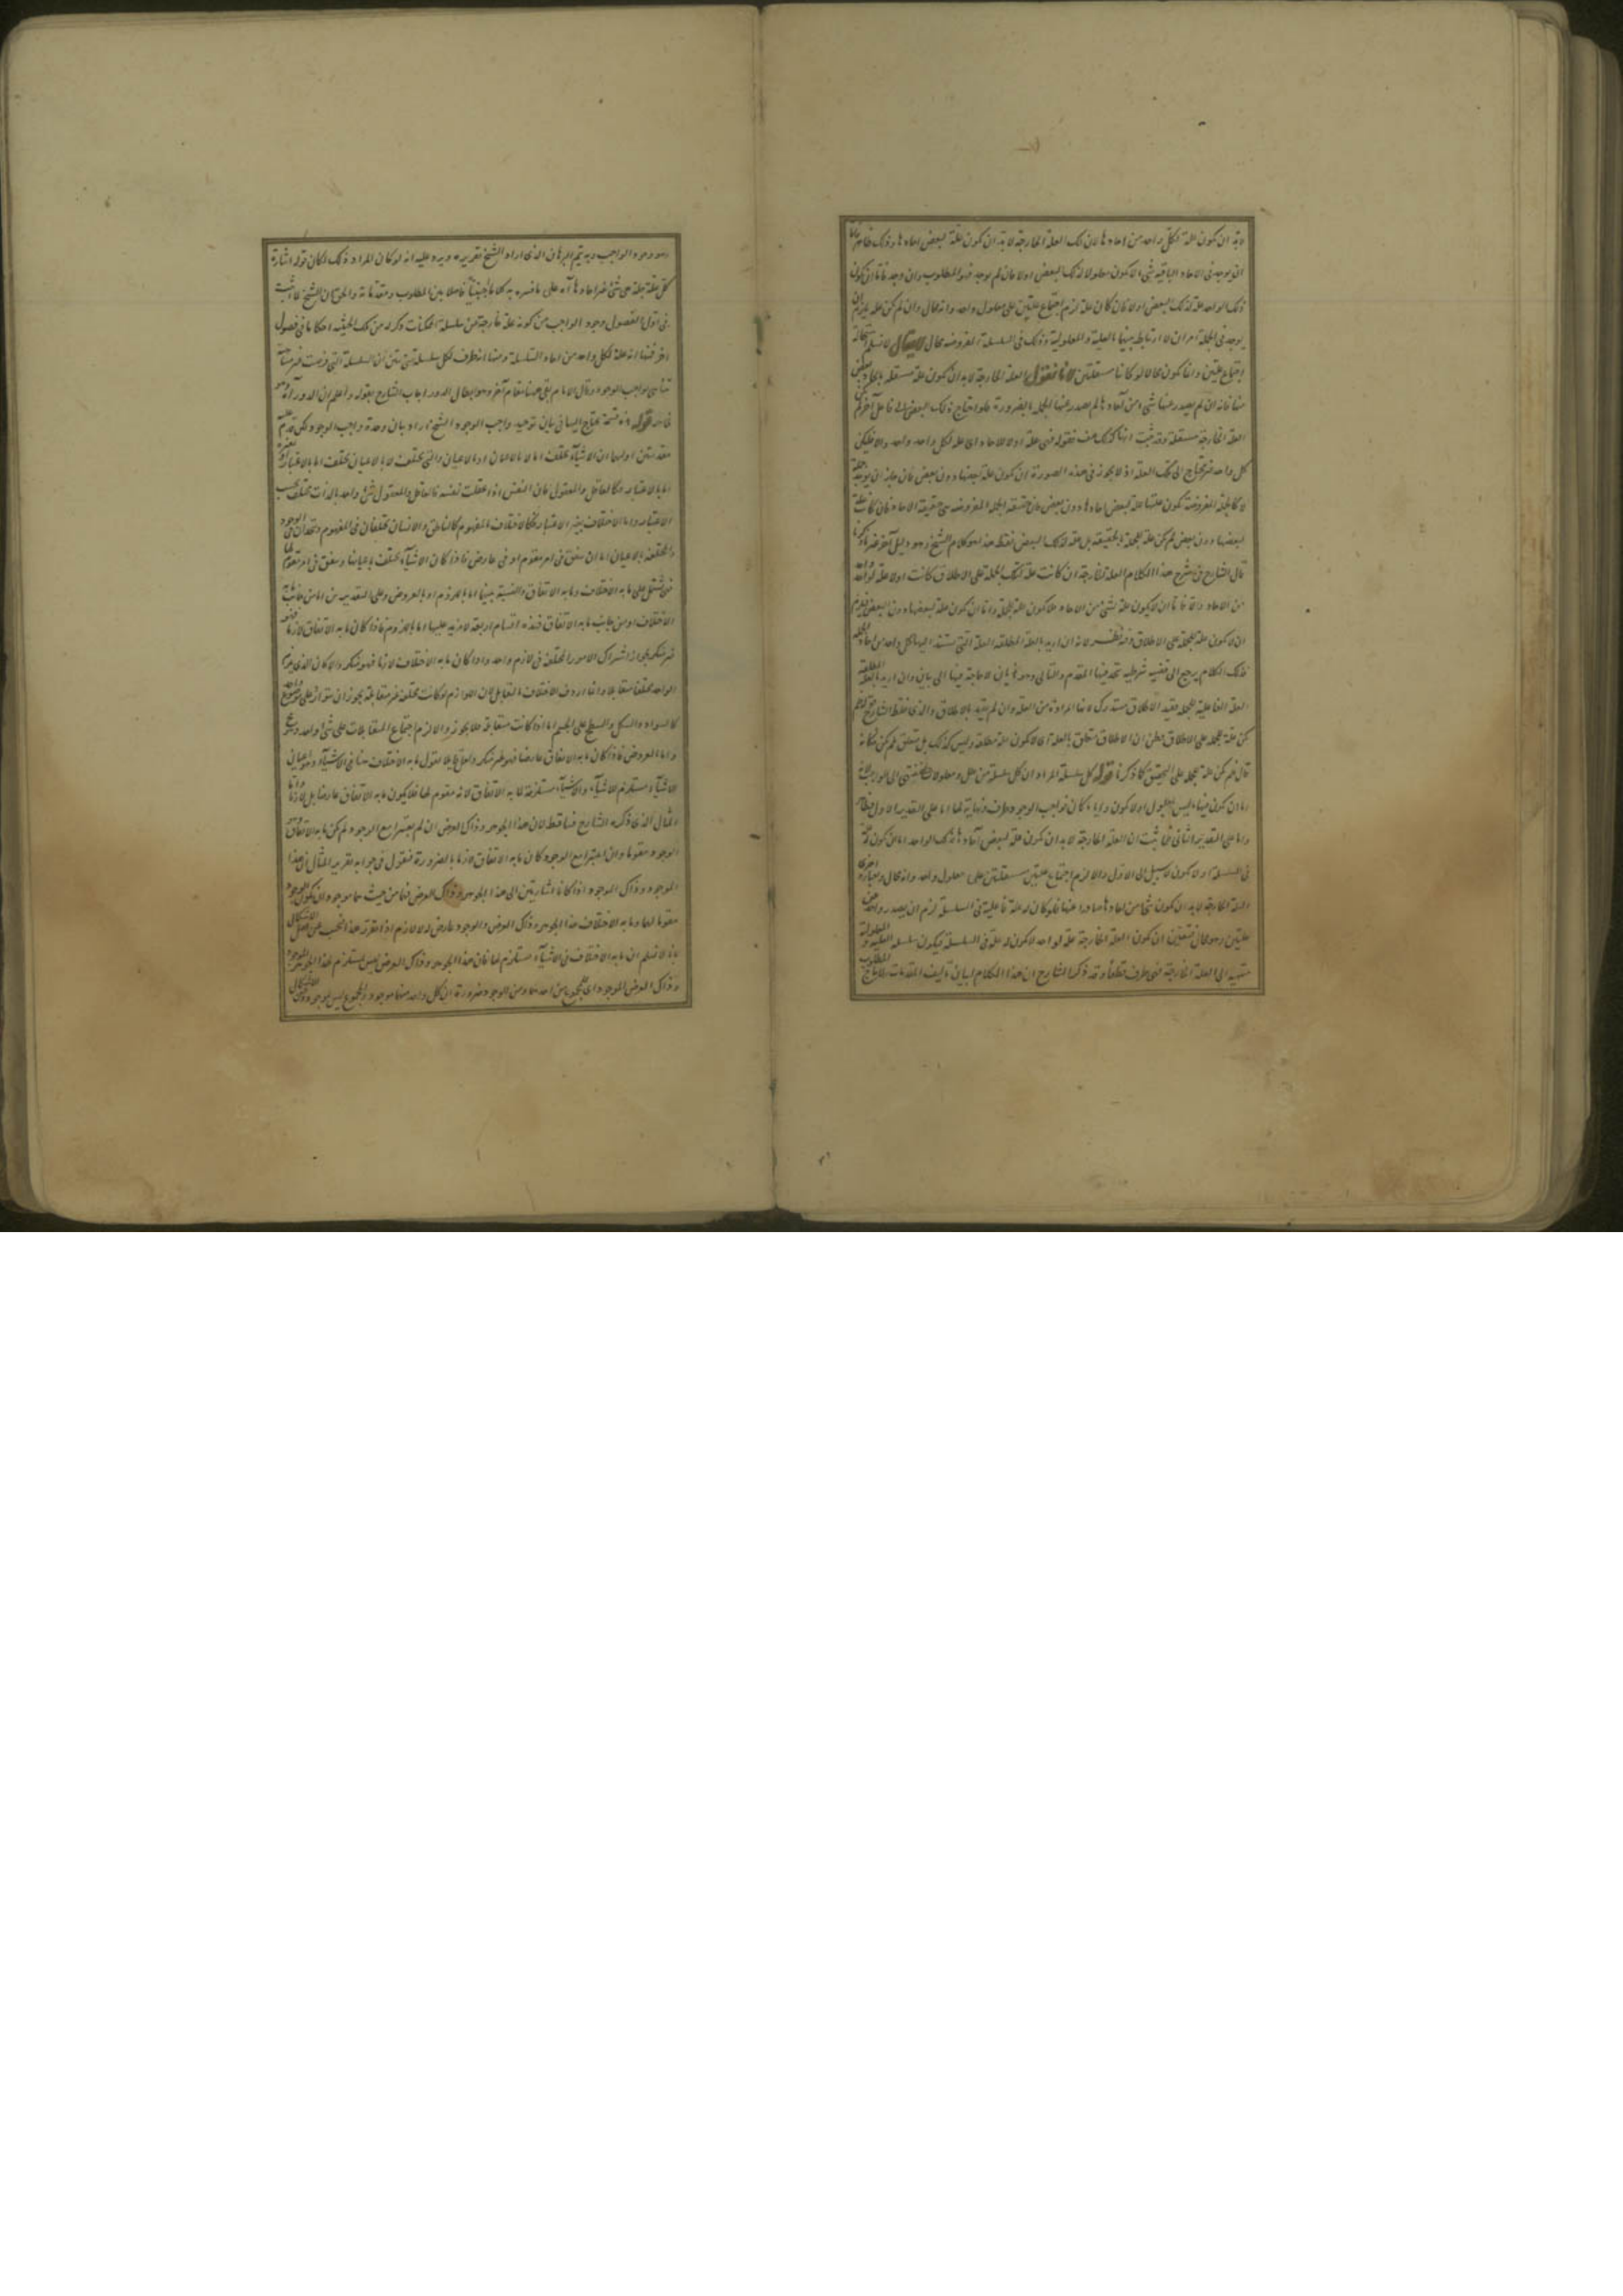 لابد ان يكون علة لكل واحد من احادها لان تلك العلة الخارجة لابد ان يكون علة لبعض احادها وذلك ظاهر
ان يوجد فى الاحاد الباقية شىء لا يكون معلولا لذلك البعض اولا فان لم يوجد فهو المطلوب وان وجد فاما ان يكون
ذلك الواحد علة لذلك البعض اولا فان كان علة لزم اجتماع علتين على معلول واحد وانه محال وان لم يكن علة لزم ان
يوجد فى الجملة امران لا ارتباط بينهما بالعلية والمعلولية وذلك فى السلسلة المفروضة محال لا يقال لا نسلم استحالة
اجتماع علتين وانما يكون محالا لو كانتا مستقلتين لانا نقول العلة الخارجة لابد ان يكون علة مستقلة بايجاد بعض
منها فانه ان لم يصدر عنها شىء من آحادها لم يصدر عنها الجملة بالضرورة فلو احتاج ذلك البعض الى فاعل آخر لم يكن
العلة الخارجة مستقلة وقد ثبت انها كذلك هف فقوله فهى علة اولا للاحاد اى علة لكل واحد واحد والا فليكن
كل واحد غير محتاج الى تلك العلة اذ لا يجوز فى هذه الصورة ان يكون علة لبعضها دون بعض فان جاز ان يوجد جملة
لا كالجملة المفروضة يكون علتها علة لبعض احادها دون بعض
لبعضها دون بعض لم يكن علة للجملة بالحقيقة بل علة لذلك البعض فقط هذا هو كلام الشيخ وهو دليل آخر غير ما ذكرنا
قال الشارح فى شرح هذا الكلام العلة الخارجة ان كانت علة لتلك الجملة على الاطلاق كانت اولا علة لواحد واحد
من الاحاد والا فاما ان لا يكون علة لشىء من الاحاد فلا يكون علة للجملة واما ان يكون علة لبعضها دون البعض فيلزم
ان لا يكون علة للجملة على الاطلاق وفيه نظر لانه ان اريد بالعلة المطلقة العلة التى يستند اليها كل واحد من احاد الجملة
فذلك الكلام يرجع الى قضية شرطية يتحد فيها المقدم والتالى وهو هذيان لا حاجة فيها الى بيان وان اريد بالعلة المطلقة
العلة الفاعلية للجملة فقيد الاطلاق مستدرك لانها المرادة من العلة وان لم يقيد بالاطلاق والذى غلط الشارح قوله لم
يكن علة للجملة على الاطلاق فظن ان الاطلاق متعلق بالعلة اى لا يكون علة مطلقة وليس كذلك بل متعلق بلم يكن فكانه
قال فلم يكن علة للجملة على التحقيق كما ذكرنا قوله كل سلسلة المراد ان كل سلسلة من علل ومعلولات ينتهى الى الواجب لانه
اما ان يكون فيها ما ليس بمعلول اولا يكون وايا ما كان فواجب الوجود طرف ونهاية لها اما على التقدير الاول فظاهر
واما على التقدير الثانى فلما ثبت ان العلة الخارجة لابد ان يكون علة لبعض آحادها فذلك الواحد اما ان يكون له علة
فى السلسلة اولا يكون لا سبيل الى الاول والا لزم اجتماع علتين مستقلتين على معلول واحد وانه محال وبعبارة اخرى
العلة الخارجة لابد ان يكون شىء من احادها صادرا عنها فلو كان له علة فاعلية فى السلسلة لزم ان يصدر واحد عن
علتين وهو محال فتعين ان يكون العلة الخارجة علة لواحد لا يكون له علة فى السلسلة فيكون سلسلة العلية والمعلولية
منتهية الى العلة الخارجة فهى طرف قطعا وقد ذكر الشارح ان هذا الكلام لبيان تأليف المقدمات لانتاج المطلوب
وهو وجود الواجب وبه يتم البرهان الذى اراد الشيخ تقريره ويرد عليه انه لو كان المراد ذلك لكان قوله اشارة
كل علة جملة هى شىء غير احادها آه على ما فسره به كلاما اجنبيا فاصلا بين المطلوب ومقدماته والحق ان الشيخ لما اثبت
فى اول الفصول وجود الواجب من كونه علة خارجة من سلسلة الممكنات ذكر له من تلك الحيثية احكاما فى فصول
اخر فمنها انه علة لكل واحد من احاد السلسلة ومنها انه طرف لكل سلسلة
تناهى بواجب الوجود وقال الامام بقى ههنا مقام آخر وهو ابطال الدور اجاب الشارح بقوله واعلم ان الدور آه وهو
ظاهر قوله هذه قسمة يحتاج اليها فى بيان توحيد واجب الوجود الشيخ اراد بيان وحدة واجب الوجود لكن قدم عليه
مقدمتين اوليهما ان الاشياء يختلف اما لا بالاعيان او بالاعيان والتى يختلف لا بالاعيان يختلف اما بالاعتبار او بغيره
اما بالاعتبار فكالعاقل والمعقول فان النفس اذا عقلت نفسه فالعاقل والمعقول شىء واحد بالذات يختلف بحسب
الاعتبار واما الاختلاف بغير الاعتبار فكالاختلاف بالمفهوم كالناطق والانسان مختلفان فى المفهوم ومتحدان فى الوجود
والمختلفة بالاعيان اما ان يتفق فى امر مقوم او فى عارض فاذا كان الاشياء يختلف باعيانها ويتفق فى امر مقوم لها
فهى يشتمل على ما به الاختلاف وما به الاتفاق والنسبة بينهما اما باللزوم او بالعروض وعلى التقديرين اما من جانب ما به
الاختلاف او من جانب ما به الاتفاق فهذه اقسام اربعة لا مزيد عليها اما باللزوم فاذا كان ما به الاتفاق لازما فهو
غير منكر بجواز اشتراك الامور المختلفة فى لازم واحد واذا كان ما به الاختلاف لازما فهو منكر والا كان الذى يلزم
الواحد مختلفا متقابلا وانما اردف الاختلاف بالتقابل لان اللوازم لو كانت مختلفة غير متقابلة يجوز ان يتوارد على موضوع واحد
كالسواد والشكل والسطح على الجسم اما اذا كانت متقابلة فلا يجوز والا لزم اجتماع المتقابلات على شىء واحد وهو مح
واما العروض فاذا كان ما به الاتفاق عارضا فهو غير منكر
الاشياء مستلزم للاشياء والاشياء مستلزمة لما به الاتفاق لانه مقوم لها فلا يكون ما به الاتفاق عارضا بل لازما واما
المثال الذى ذكره الشارح فساقط لان هذا الجوهر وذاك العرض ان لم يعتبرا مع الوجود لم يكن ما به الاتفاق وهو
الوجود مقوما وان اعتبرا مع الوجود كان ما به الاتفاق لازما بالضرورة فنقول فى جوابه تقرير المثال ان هذا
الموجود وذاك الموجود اذا كانا اشارتين الى هذا الجوهر وذاك العرض فهما من حيث هما موجودان يكون الوجود
مقوما لهما وما به الاختلاف هذا الجوهر وذاك العرض والوجود عارض له لا لازم
بانا لا نسلم ان ما به الاختلاف فى الاشياء مستلزم لها فان هذا الجوهر وذاك العرض ليس مستلزم لهذا الجوهر الموجود
وذاك العرض الموجود اى للمجموع من احدهما ومن الوجود ضرورة ان كل واحد منهما موجود والمجموع ليس بموجود